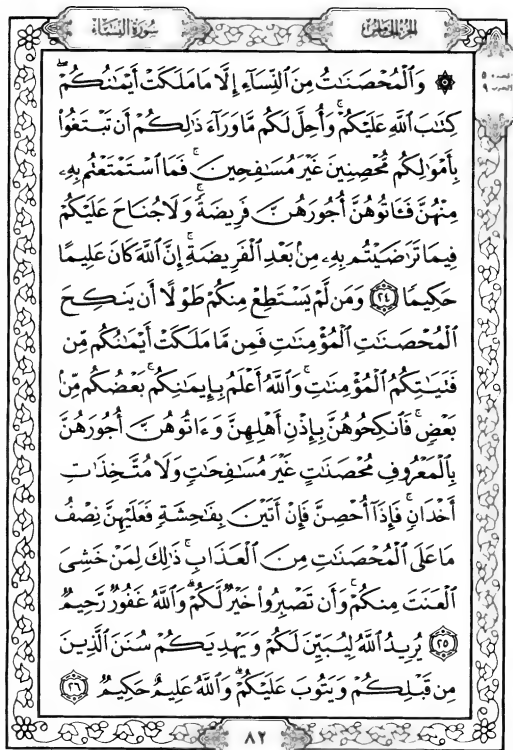 سُورَةُ النِّسَاءِ
الجُزْءُ الخَامِسُ
الحزب ٩
۞ وَٱلْمُحْصَنَٰتُ مِنَ ٱلنِّسَآءِ إِلَّا مَا مَلَكَتْ أَيْمَٰنُكُمْ ۖ
كِتَٰبَ ٱللَّهِ عَلَيْكُمْ ۚ وَأُحِلَّ لَكُم مَّا وَرَآءَ ذَٰلِكُمْ أَن تَبْتَغُوا۟
بِأَمْوَٰلِكُم مُّحْصِنِينَ غَيْرَ مُسَٰفِحِينَ ۚ فَمَا ٱسْتَمْتَعْتُم بِهِۦ
مِنْهُنَّ فَـَٔاتُوهُنَّ أُجُورَهُنَّ فَرِيضَةً ۚ وَلَا جُنَاحَ عَلَيْكُمْ
فِيمَا تَرَٰضَيْتُم بِهِۦ مِنۢ بَعْدِ ٱلْفَرِيضَةِ ۚ إِنَّ ٱللَّهَ كَانَ عَلِيمًا
حَكِيمًا ٢٤ وَمَن لَّمْ يَسْتَطِعْ مِنكُمْ طَوْلًا أَن يَنكِحَ
ٱلْمُحْصَنَٰتِ ٱلْمُؤْمِنَٰتِ فَمِن مَّا مَلَكَتْ أَيْمَٰنُكُم مِّن
فَتَيَٰتِكُمُ ٱلْمُؤْمِنَٰتِ ۚ وَٱللَّهُ أَعْلَمُ بِإِيمَٰنِكُم ۚ بَعْضُكُم مِّنۢ
بَعْضٍ ۚ فَٱنكِحُوهُنَّ بِإِذْنِ أَهْلِهِنَّ وَءَاتُوهُنَّ أُجُورَهُنَّ
بِٱلْمَعْرُوفِ مُحْصَنَٰتٍ غَيْرَ مُسَٰفِحَٰتٍ وَلَا مُتَّخِذَٰتِ
أَخْدَانٍ ۚ فَإِذَآ أُحْصِنَّ فَإِنْ أَتَيْنَ بِفَٰحِشَةٍ فَعَلَيْهِنَّ نِصْفُ
مَا عَلَى ٱلْمُحْصَنَٰتِ مِنَ ٱلْعَذَابِ ۚ ذَٰلِكَ لِمَنْ خَشِىَ
ٱلْعَنَتَ مِنكُمْ ۚ وَأَن تَصْبِرُوا۟ خَيْرٌ لَّكُمْ ۗ وَٱللَّهُ غَفُورٌ رَّحِيمٌ
٢٥ يُرِيدُ ٱللَّهُ لِيُبَيِّنَ لَكُمْ وَيَهْدِيَكُمْ سُنَنَ ٱلَّذِينَ
مِن قَبْلِكُمْ وَيَتُوبَ عَلَيْكُمْ ۗ وَٱللَّهُ عَلِيمٌ حَكِيمٌ ٢٦
٨٢